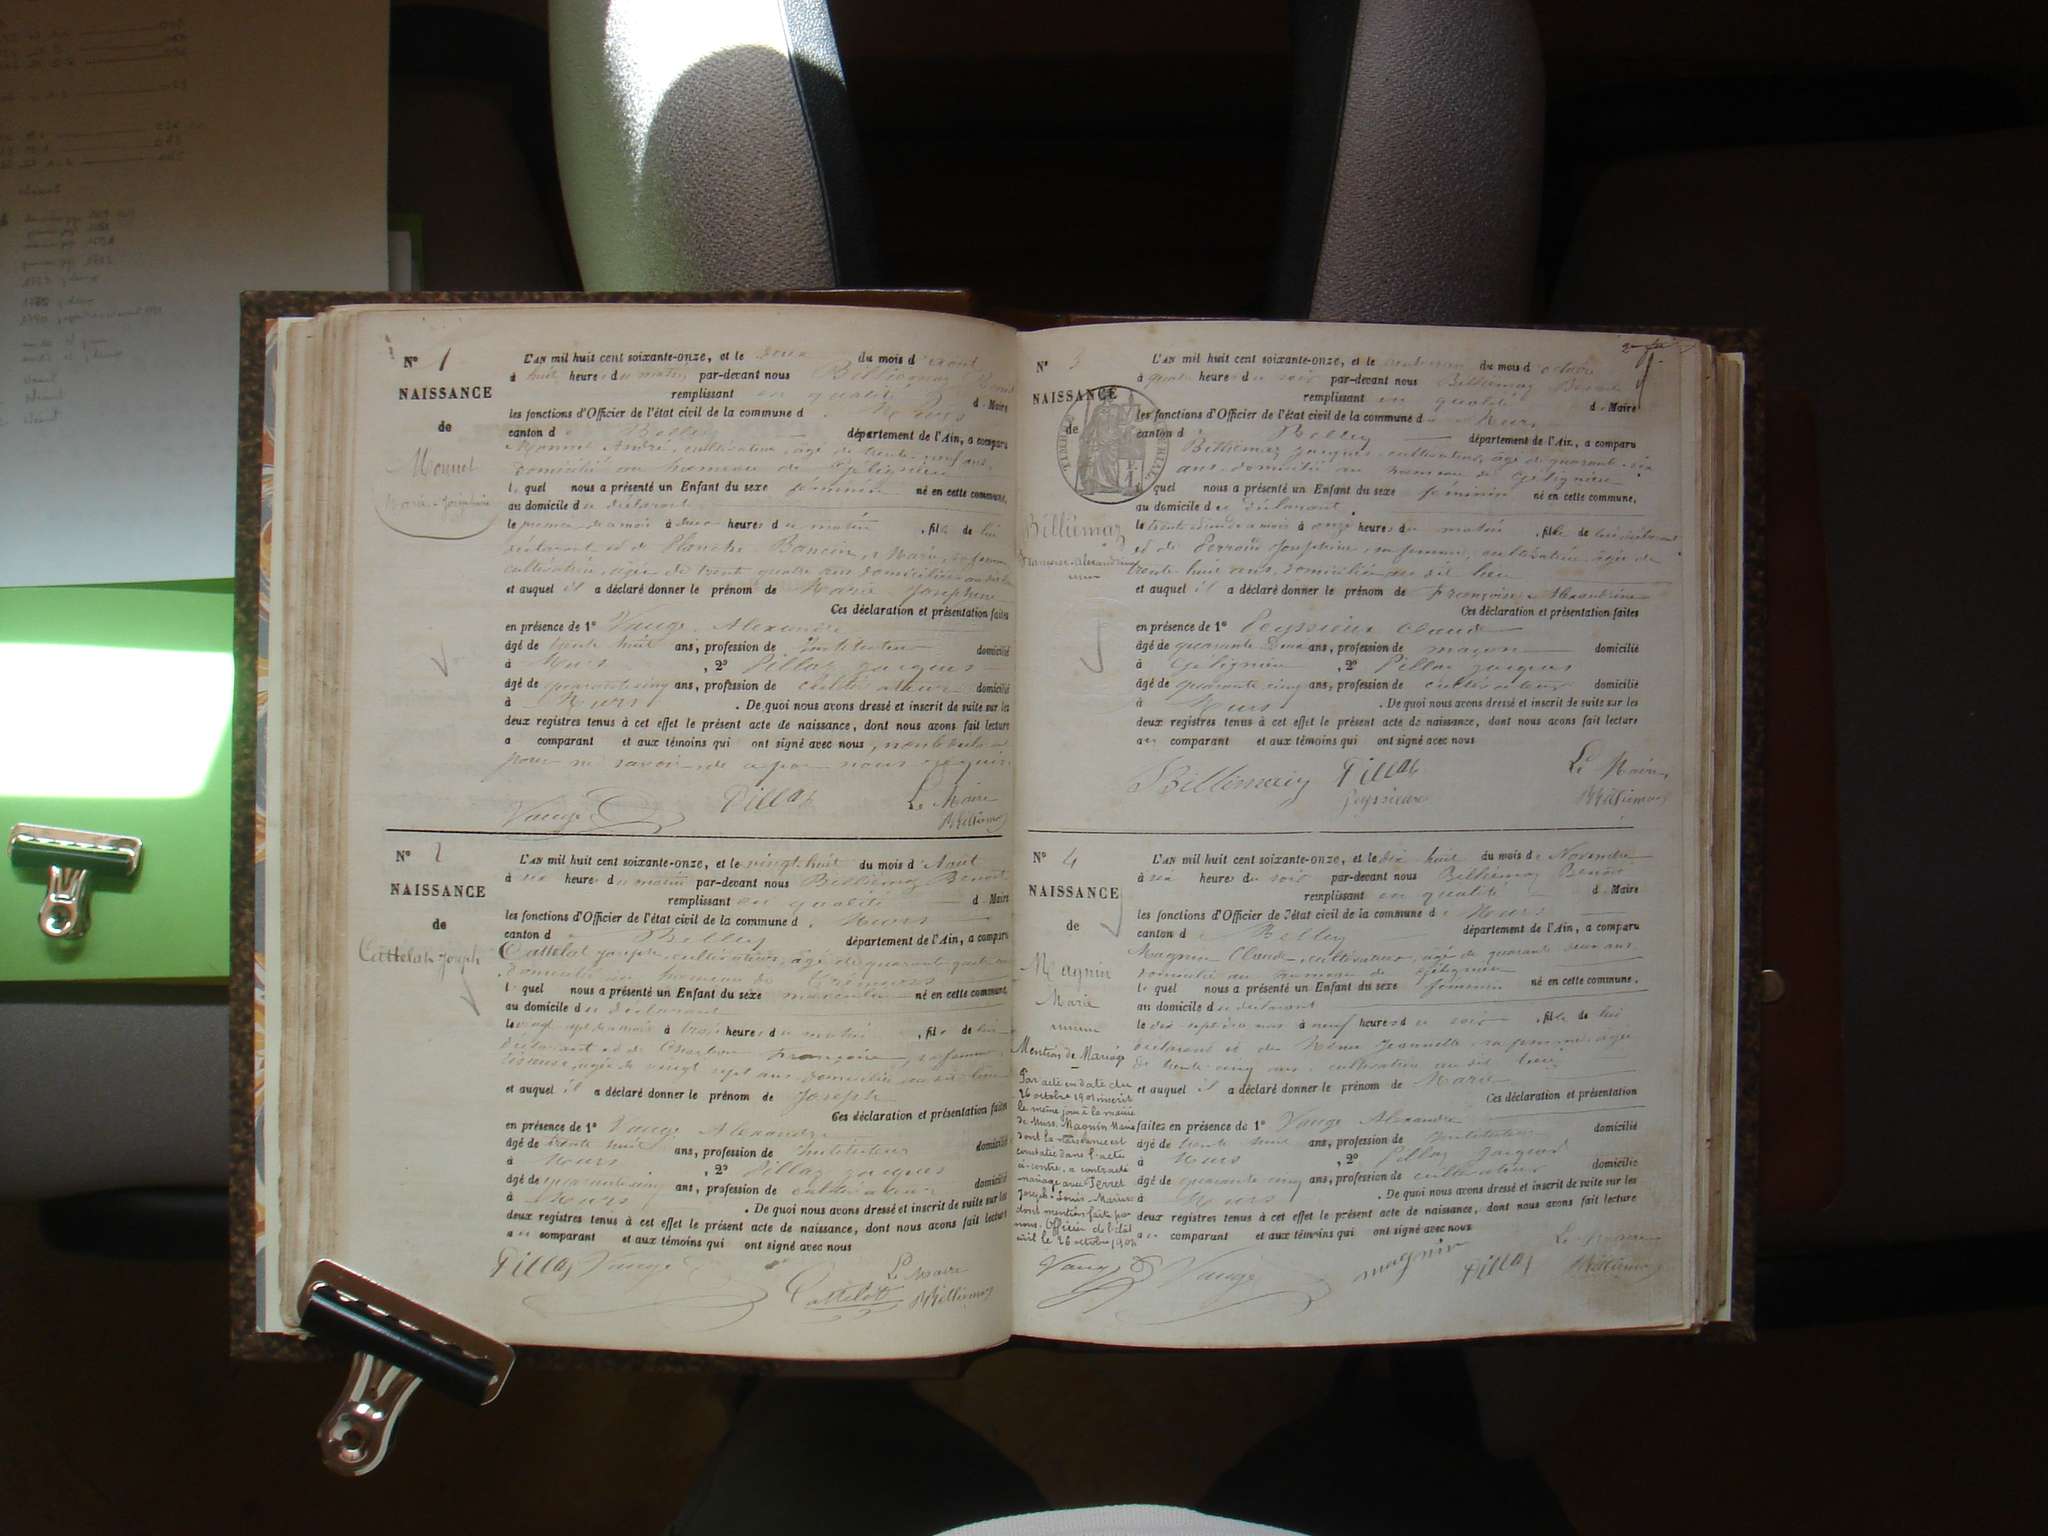 N° 1
NAISSANCE
de
Monnet
Marie-Joséphine
L'AN mil huit cent soixante-onze, et le deux du mois d'août
à huit heures du matin par-devant nous Billiemaz Benoit
remplissant en qualité d Maire
les fonctions d'Officier de l'état civil de la commune d Murs
canton de Belley département de l'Ain, a comparu
Monnet André, cultivateur, âgé de trente-neuf ans,
domicilié au hameau de Gelignieu
lequel nous a présenté un Enfant du sexe féminin né en cette commune,
au domicile du déclarant
le premier du mois à heures du matin, fille de lui
déclarant et de Marie, sa femme
cultivatrice, âgée de trente quatre ans domiciliée au dit lieu
et auquel il a déclaré donner le prénom de Marie Joséphine
Ces déclaration et présentation faites
en présence de 1° Vauge Alexandre
âgé de trente huit ans, profession de Instituteur domicilié
à Murs, 2° Pillaz Jacques
âgé de quarante cinq ans, profession de cultivateur domicilié
à Murs. De quoi nous avons dressé et inscrit de suite sur les
deux registres tenus à cet effet le présent acte de naissance, dont nous avons fait lecture
a comparant et aux témoins qui ont signé avec nous
pour ne savoir, de ce par nous requis
Vauge Pillaz Le Maire
Billiemaz
N° 2
NAISSANCE
de
Cattelat Joseph
L'AN mil huit cent soixante-onze, et le vingt-huit du mois d'Août
à six heures du matin par-devant nous Billiemaz Benoit
remplissant en qualité d Maire
les fonctions d'Officier de l'état civil de la commune d Murs
canton de Belley département de l'Ain, a comparu
Cattelat Joseph, cultivateur, âgé de quarante quatre ans
domicilié au hameau de
lequel nous a présenté un Enfant du sexe masculin né en cette commune,
au domicile du déclarant
le vingt sept du mois à trois heures du matin, fils de lui
déclarant et de Françoise, sa femme
âgée de vingt sept ans domiciliée au dit lieu
et auquel il a déclaré donner le prénom de Joseph
Ces déclaration et présentation faites
en présence de 1° Vauge Alexandre
âgé de trente huit ans, profession de Instituteur domicilié
à Murs, 2° Pillaz Jacques
âgé de quarante cinq ans, profession de cultivateur domicilié
à Murs. De quoi nous avons dressé et inscrit de suite sur les
deux registres tenus à cet effet le présent acte de naissance, dont nous avons fait lecture
au comparant et aux témoins qui ont signé avec nous
Pillaz Vauge Cattelat Le Maire
Billiemaz
N° 3
NAISSANCE
de
Billiemaz
Françoise-Alexandrine
L'AN mil huit cent soixante-onze, et le du mois d'octobre
à quatre heures du soir par-devant nous Billiemaz Benoit
remplissant en qualité d Maire
les fonctions d'Officier de l'état civil de la commune d Murs
canton de Belley département de l'Ain, a comparu
Billiemaz Jacques, cultivateur, âgé de quarante-six
ans, domicilié au hameau de Gelignieu
lequel nous a présenté un Enfant du sexe féminin né en cette commune,
au domicile du déclarant
le du mois à onze heures du matin, fille de lui déclarant
et de Joséphine, sa femme, cultivatrice, âgée de
trente-huit ans, domiciliée au dit lieu
et auquel il a déclaré donner le prénom de Françoise Alexandrine
Ces déclaration et présentation faites
en présence de 1° Peyssieux Claude
âgé de quarante deux ans, profession de maçon domicilié
à Gelignieu, 2° Pillaz Jacques
âgé de quarante cinq ans, profession de cultivateur domicilié
à Murs. De quoi nous avons dressé et inscrit de suite sur les
deux registres tenus à cet effet le présent acte de naissance, dont nous avons fait lecture
au comparant et aux témoins qui ont signé avec nous
Billiemaz Pillaz Le Maire
Peyssieux Billiemaz
N° 4
NAISSANCE
de
Magnin
Marie
Mention de Mariage
Par acte en date du
26 octobre 1901 inscrit
le même jour à la mairie
de Murs, Magnin Marie
dont la naissance est
constatée dans l'acte
ci-contre, a contracté
mariage avec Perret
Joseph-Louis-Marius
dont mention faite par
nous, Officier de l'état
civil le 26 octobre 1901
L'AN mil huit cent soixante-onze, et le dix huit du mois de Novembre
à six heures du soir par-devant nous Billiemaz Benoit
remplissant en qualité d Maire
les fonctions d'Officier de l'état civil de la commune de Murs
canton de Belley département de l'Ain, a comparu
Magnin Claude, cultivateur, âgé de quarante deux ans
domicilié au hameau de Gelignieu
lequel nous a présenté un Enfant du sexe féminin né en cette commune,
au domicile du déclarant
le dix sept du mois à neuf heures du soir, fille de lui
déclarant et de Jeannette, sa femme, âgée
de trente cinq ans, cultivatrice au dit lieu
et auquel il a déclaré donner le prénom de Marie
Ces déclaration et présentation
faites en présence de 1° Vauge Alexandre
âgé de trente huit ans, profession de Instituteur domicilié
à Murs, 2° Pillaz Jacques
âgé de quarante cinq ans, profession de cultivateur domicilié
à Murs. De quoi nous avons dressé et inscrit de suite sur les
deux registres tenus à cet effet le présent acte de naissance, dont nous avons fait lecture
au comparant et aux témoins qui ont signé avec nous
Vauge Magnin Pillaz Le Maire
Billiemaz